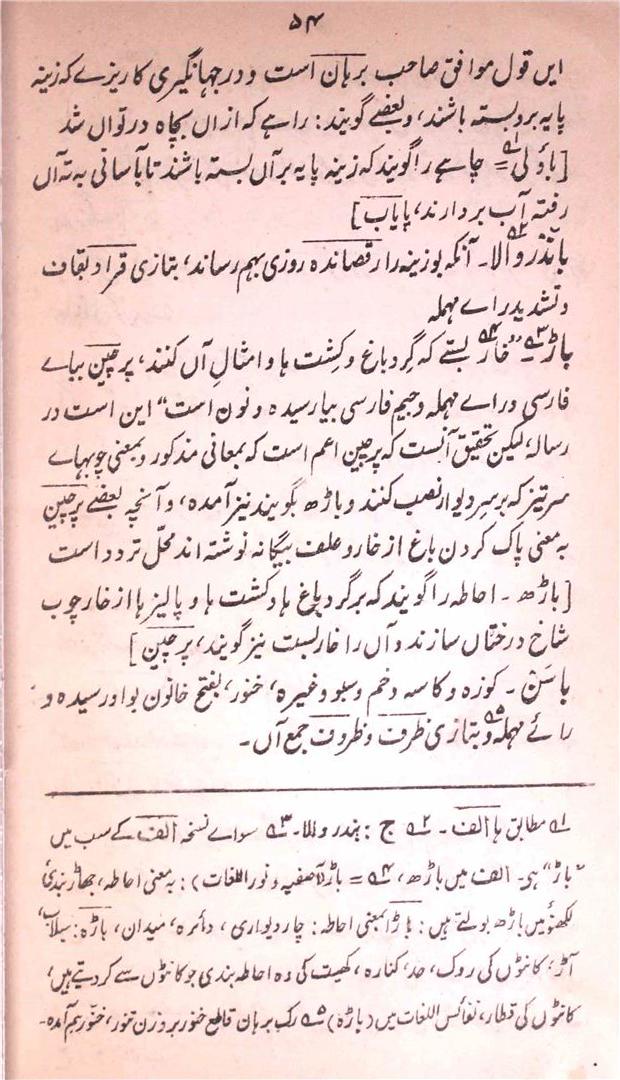 ۵۴
ایں قول موافق صاحب برہان است و در جہانگیری کاریزے کہ زینہ
پایہ بر دبستہ باشند، و بعضے گویند: راہے کہ ازاں بچاہ در تواں شد
[باؤلی۱؎ = چاہے را گویند کہ زینہ پایہ برآں بستہ باشند تا بآسانی بہ تہ آں
رفتہ آب بردارند، پایاب]
باندر والا۲؎۔ آنکہ بوزینہ را رقصاندہ روزی بہم رساند، بتازی قراد بقاف
و تشدید راے مہملہ
باڑ۳؎۔ "خار۴؎ بستے کہ گِرد باغ و کِشت ہا و امثالِ آں کنند، پرچین بباے
فارسی و راے مہملہ و جیم فارسی بیا رسیدہ و نون است" این است در
رسالہ، لیکن تحقیق آنست کہ پرچین اعم است کہ بمعانی مذکور و بمعنی چوبہاے
سرتیز کہ برسرِ دیوار نصب کنند و باڑھ بگویند نیز آمدہ، و آنچہ بعضے پرچین
بہ معنی پاک کردن باغ از خار و علف بیگانہ نوشتہ اند محلّ تردد است
[باڑھ۔ احاطہ را گویند کہ برگرد باغ ہا و کشت ہا و پالیز ہا از خار چوب
شاخ درختاں سازند و آں را خاربست نیز گویند، پرچین]
باسَن۔ کوزہ و کاسہ و خم و سبو وغیرہ، خنور، بفتح خا و نون بواو رسیدہ و
رائے مہملہ۵؎ و بتازی ظرف و ظروف جمع آں۔
۱؎ مطابق ہا الف۔ ۲؎ ج : بندر والا۔ ۳؎ سواے نسخہ الف کے سب میں
"باڑ" ہی۔ الف میں باڑھ، ۴؎ = باڑ (آصفیہ و نور اللغات) : بہ معنی احاطہ، جھاڑ بندی
لکھنؤ میں باڑھ بولتے ہیں : باڑا بمعنی احاطہ : چار دیواری، دائرہ، میدان، باڑہ : سیلاب،
آڑ، کانٹوں کی روک، حد، کنارہ، کھیت کی وہ احاطہ بندی جو کانٹوں سے کردیتے ہیں،
کانٹوں کی قطار، نفائس اللغات میں (باڑہ) ۵؎ رک برہان قاطع خنور بر وزن تنور، خنّور ہم آمدہ۔